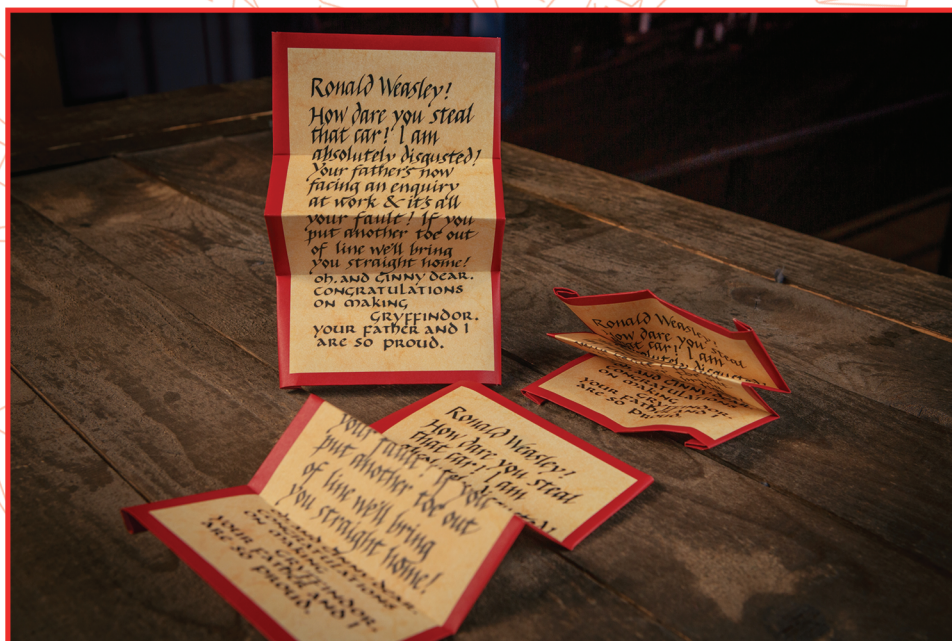 Ronald Weasley!
How dare you steal
that car! I am
absolutely disgusted!
Your father's now
facing an enquiry
at work & it's all
your fault! If you
put another toe out
of line we'll bring
you straight home!
Oh, and Ginny dear,
congratulations
on making
Gryffindor.
Your father and I
are so proud.
Ronald Weasley!
How dare you steal
that car! I am
absolutely disgusted!
Oh, and Ginny dear,
congratulations
on making
Gryffindor.
Your father
are so
Ronald Weasley!
How dare you steal
that car! I am
your fault! If you
put another toe out
of line we'll bring
you straight home!
congratulations
on making
Gryffindor.
Your father and I
are so proud.